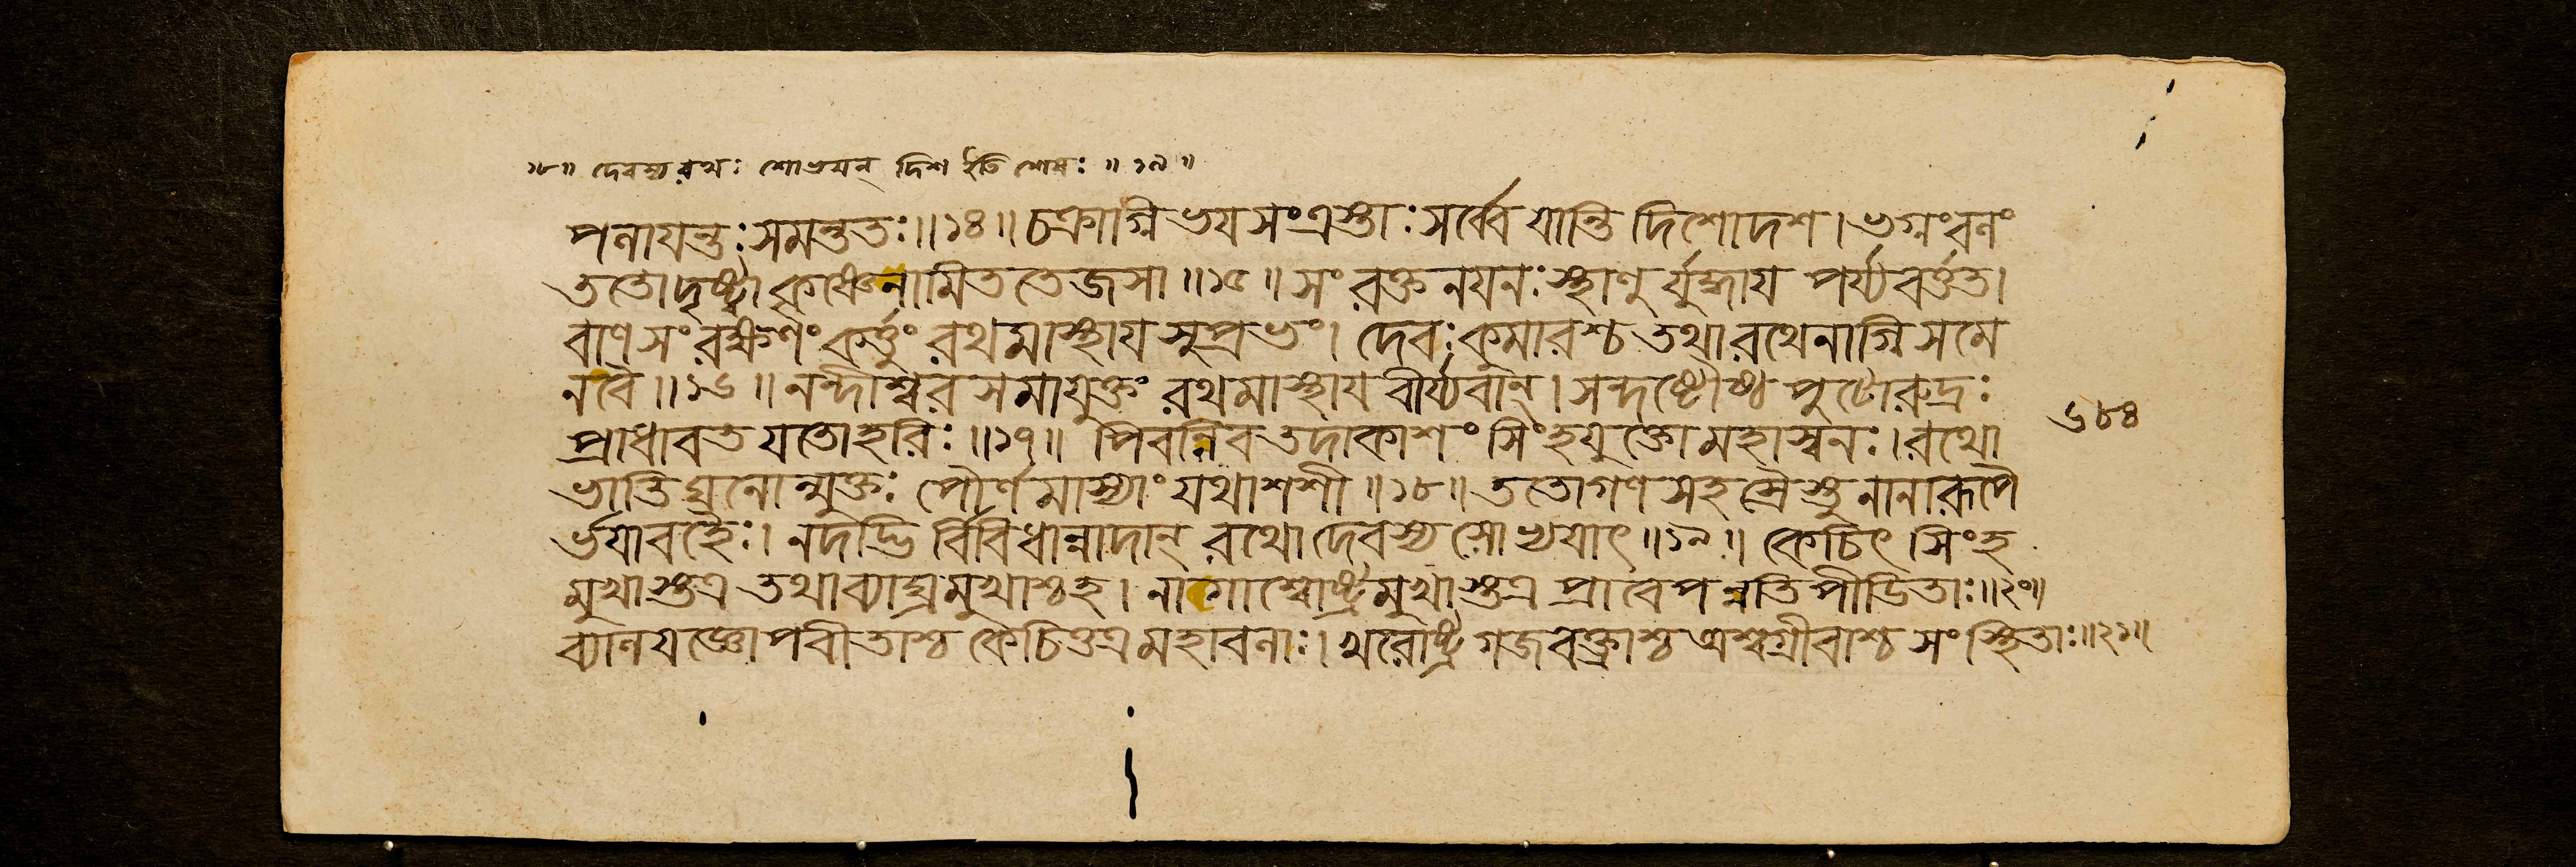 ১৮॥ দেবস্য রথঃ শোভয়ন্ দিশ ইতি শেষঃ ॥১৯॥
পনাযন্তঃ সমন্ততঃ॥১৪॥ চক্রাগ্নিভযসংত্রস্তাঃ সর্ব্বে যান্তি দিশোদশ। ভগ্নং বলং
ততোদৃষ্ট্বা কৃষ্ণেনামিততেজসা॥১৫॥ সংরক্তনযনঃ স্থাণুর্যুদ্ধায পর্য্যবর্ত্তত।
বাণসংরক্ষণং কর্ত্তুং রথমাস্থায সুপ্রভং। দেবঃ কুমারশ্চ তথা রথেনাগ্নিসমে
নবৈ॥১৬॥ নন্দীশ্বরসমাযুক্তং রথমাস্থায বীর্য্যবান্। সন্দষ্টৌষ্ঠপুটোরুদ্রঃ
প্রাধাবত যতোহরিঃ॥১৭॥ পিবন্নিব তদাকাশং সিংহযুক্তো মহাস্বনঃ। রথো
ভাতি ঘনোন্মুক্তঃ পৌর্ণমাস্যাং যথাশশী॥১৮॥ ততোগণসহস্রৈস্তু নানারূপৈ
র্ভযাবহৈঃ। নদদ্ভির্বিবিধান্নাদান্ রথো দেবস্য সোভ্যযাৎ॥১৯॥ কেচিৎ সিংহ
মুখাস্তত্র তথা ব্যাঘ্রমুখাশ্চহ। নাগাশ্বোষ্ট্রমুখাস্তত্র প্রাবেপন্নতিপীডিতাঃ॥২০॥
ব্যালযজ্ঞোপবীতাশ্চ কেচিত্তত্র মহাবলাঃ। খরোষ্ট্রগজবক্ত্রাশ্চ অশ্বগ্রীবাশ্চ সংস্থিতাঃ॥২১॥
৬৮৪